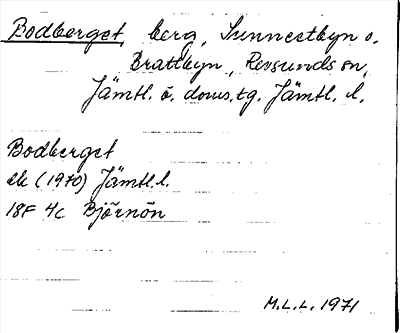 Bodberget, berg, Sunnestbyn o.
Brattbyn, Revsunds sn,
Jämtl. ö. doms.tg. Jämtl. l.
Bodberget
ek (1970) Jämtl.l.
18F 4c Björnön
M.L.L. 1971